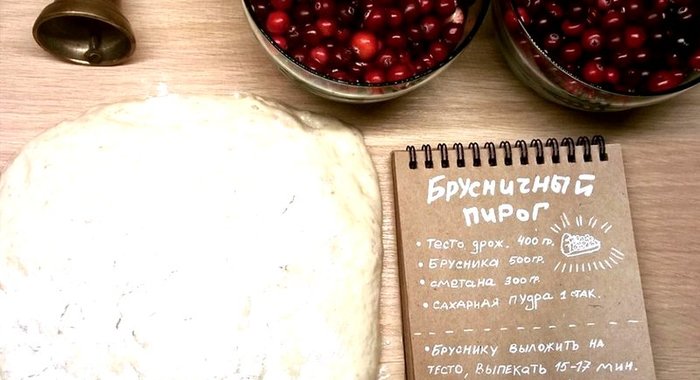 Брусничный
пирог
• Тесто дрож. 400 гр.
• Брусника 500гр.
• сметана 300 гр.
• сахарная пудра 1 стак.
• Бруснику выложить на
тесто, выпекать 15-17 мин.